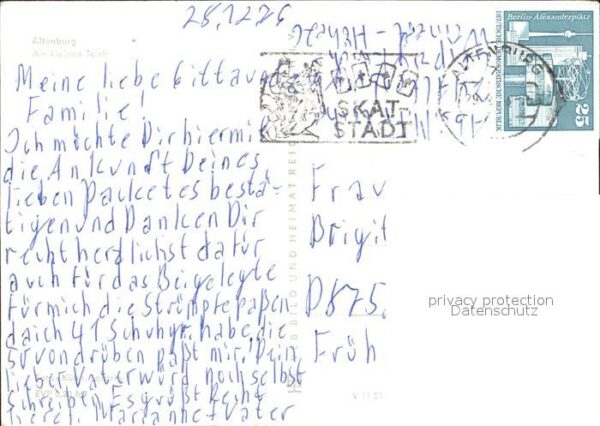 28.12.76
Altenburg
Am kleinen Teich
Meine liebe Gitta und
Familie!
Ich möchte Dir hiermit
die Ankunft Deines
lieben Packetes bestä-
tigen und Danken Dir
recht herzlichst dafür
auch für das Beigelegte
für mich die Strümpfe paßen
da ich 41 Schuhgr. habe, die
So von drüben paßt mir. Dein
lieber Vater würd noch selbst
Schreiben Es grüßt Recht
Marianne + Vater
EVP
BILD UND HEIMAT REI
V 11 50
SKAT-
STADT
ALTENBURG
Berlin-Alexanderplatz
DEUTSCHE DEMOKRATISCHE REPUBLIK
25
Frau
Brigit
D 875.
Früh
privacy protection
Datenschutz